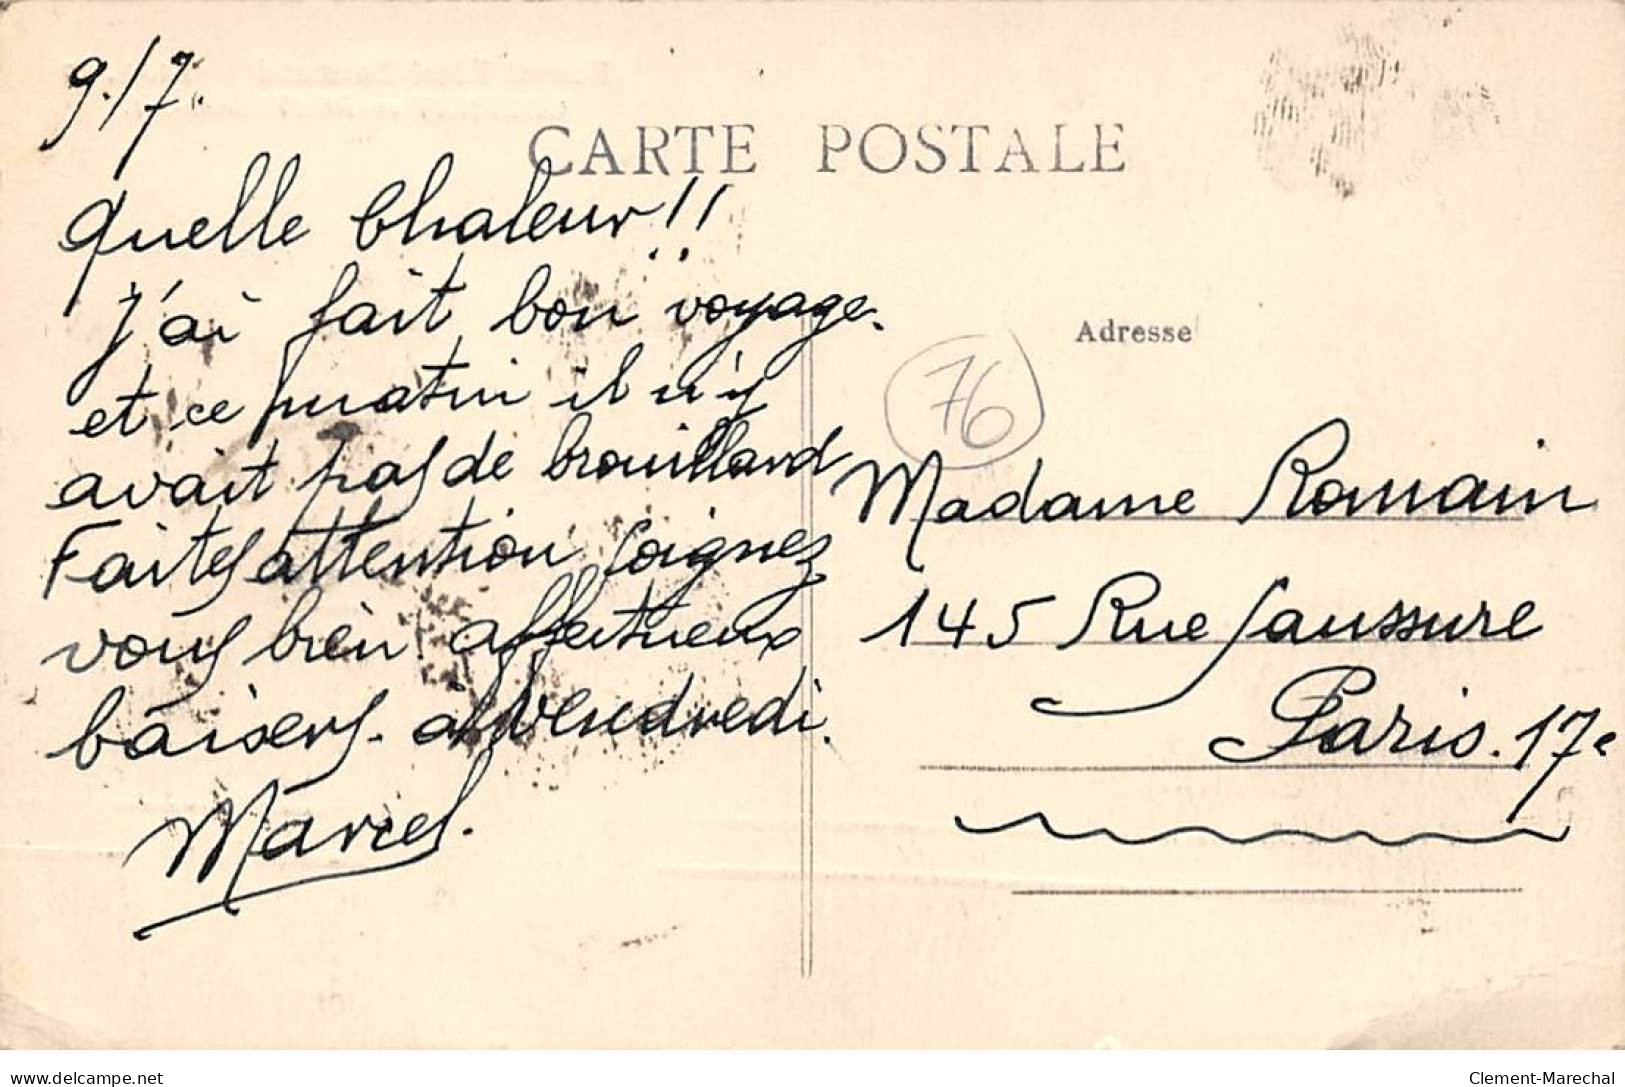 9/7.
CARTE POSTALE
Quelle Chaleur!!
J'ai fait bon voyage.
et ce matin il n'y
avait pas de brouillard
Faites attention soignez
vous bien affectueux
baisers. à Vendredi.
Marcel.
76
Adresse
Madame Romain
145 Rue Saussure
Paris. 17e
www.delcampe.net
Clement-Marechal